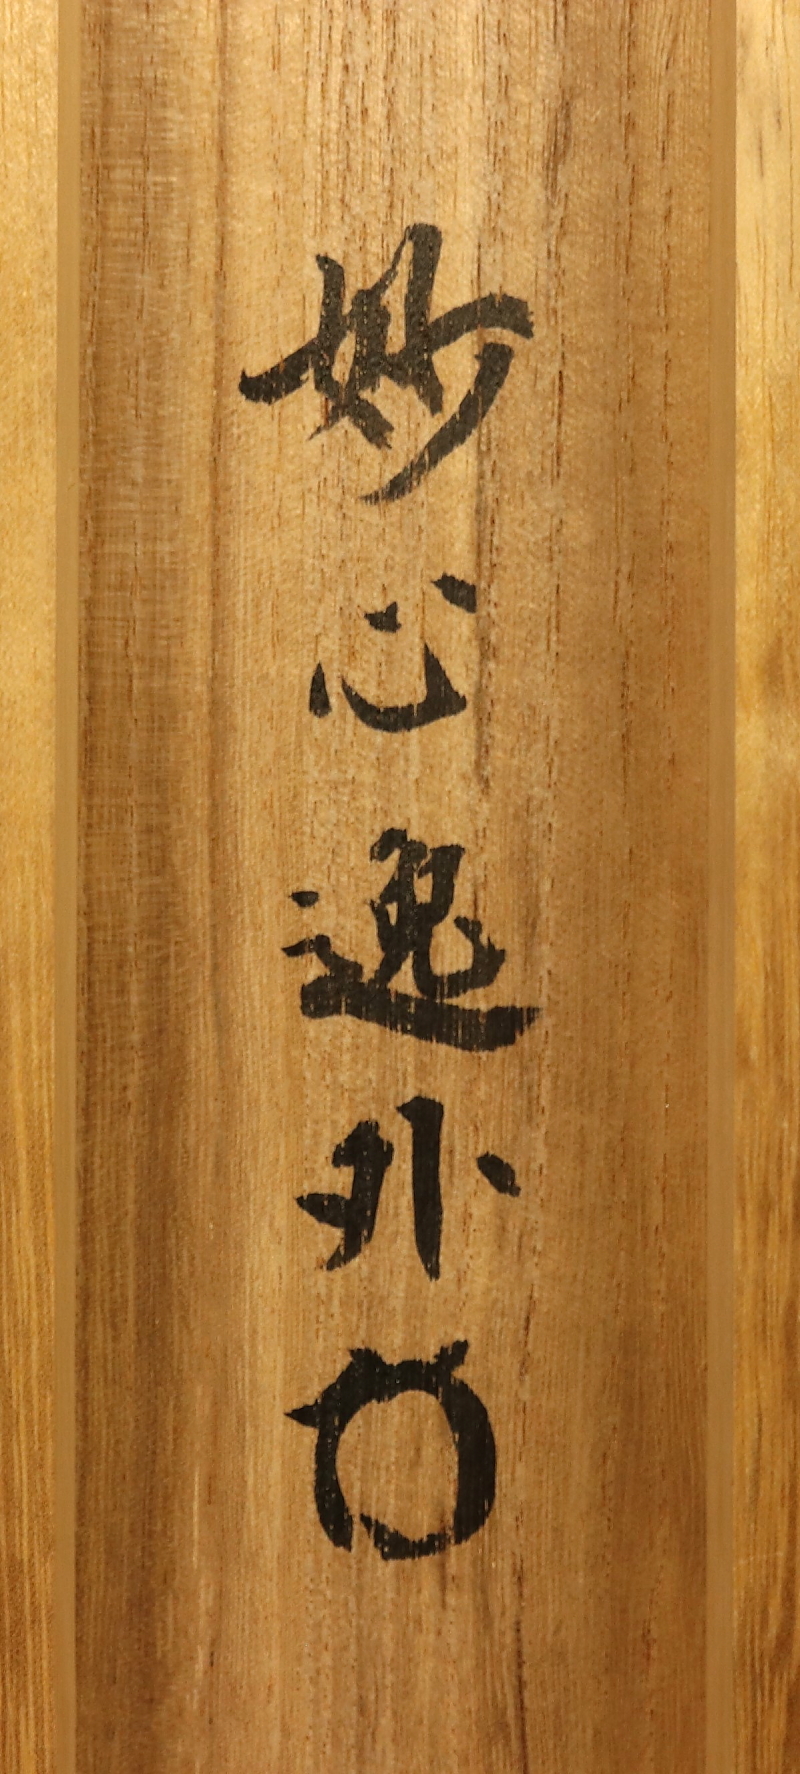 妙心逸外